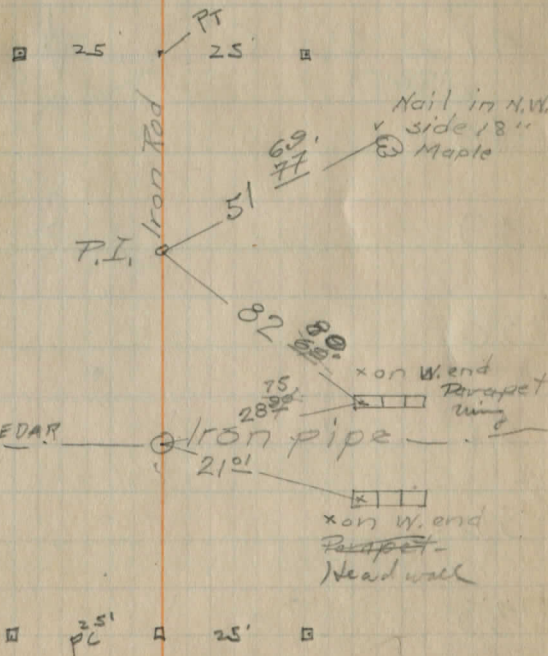 PT
25 25
Iron Rod
Nail in N.W.
side 18"
Maple
69.
77
51
P.I.
82
80
x on W. end
Parapet
wing
75.
28
EDAR
Iron pipe
21 01
x on W. end
Parapet
Head wall
25' 25'
PC